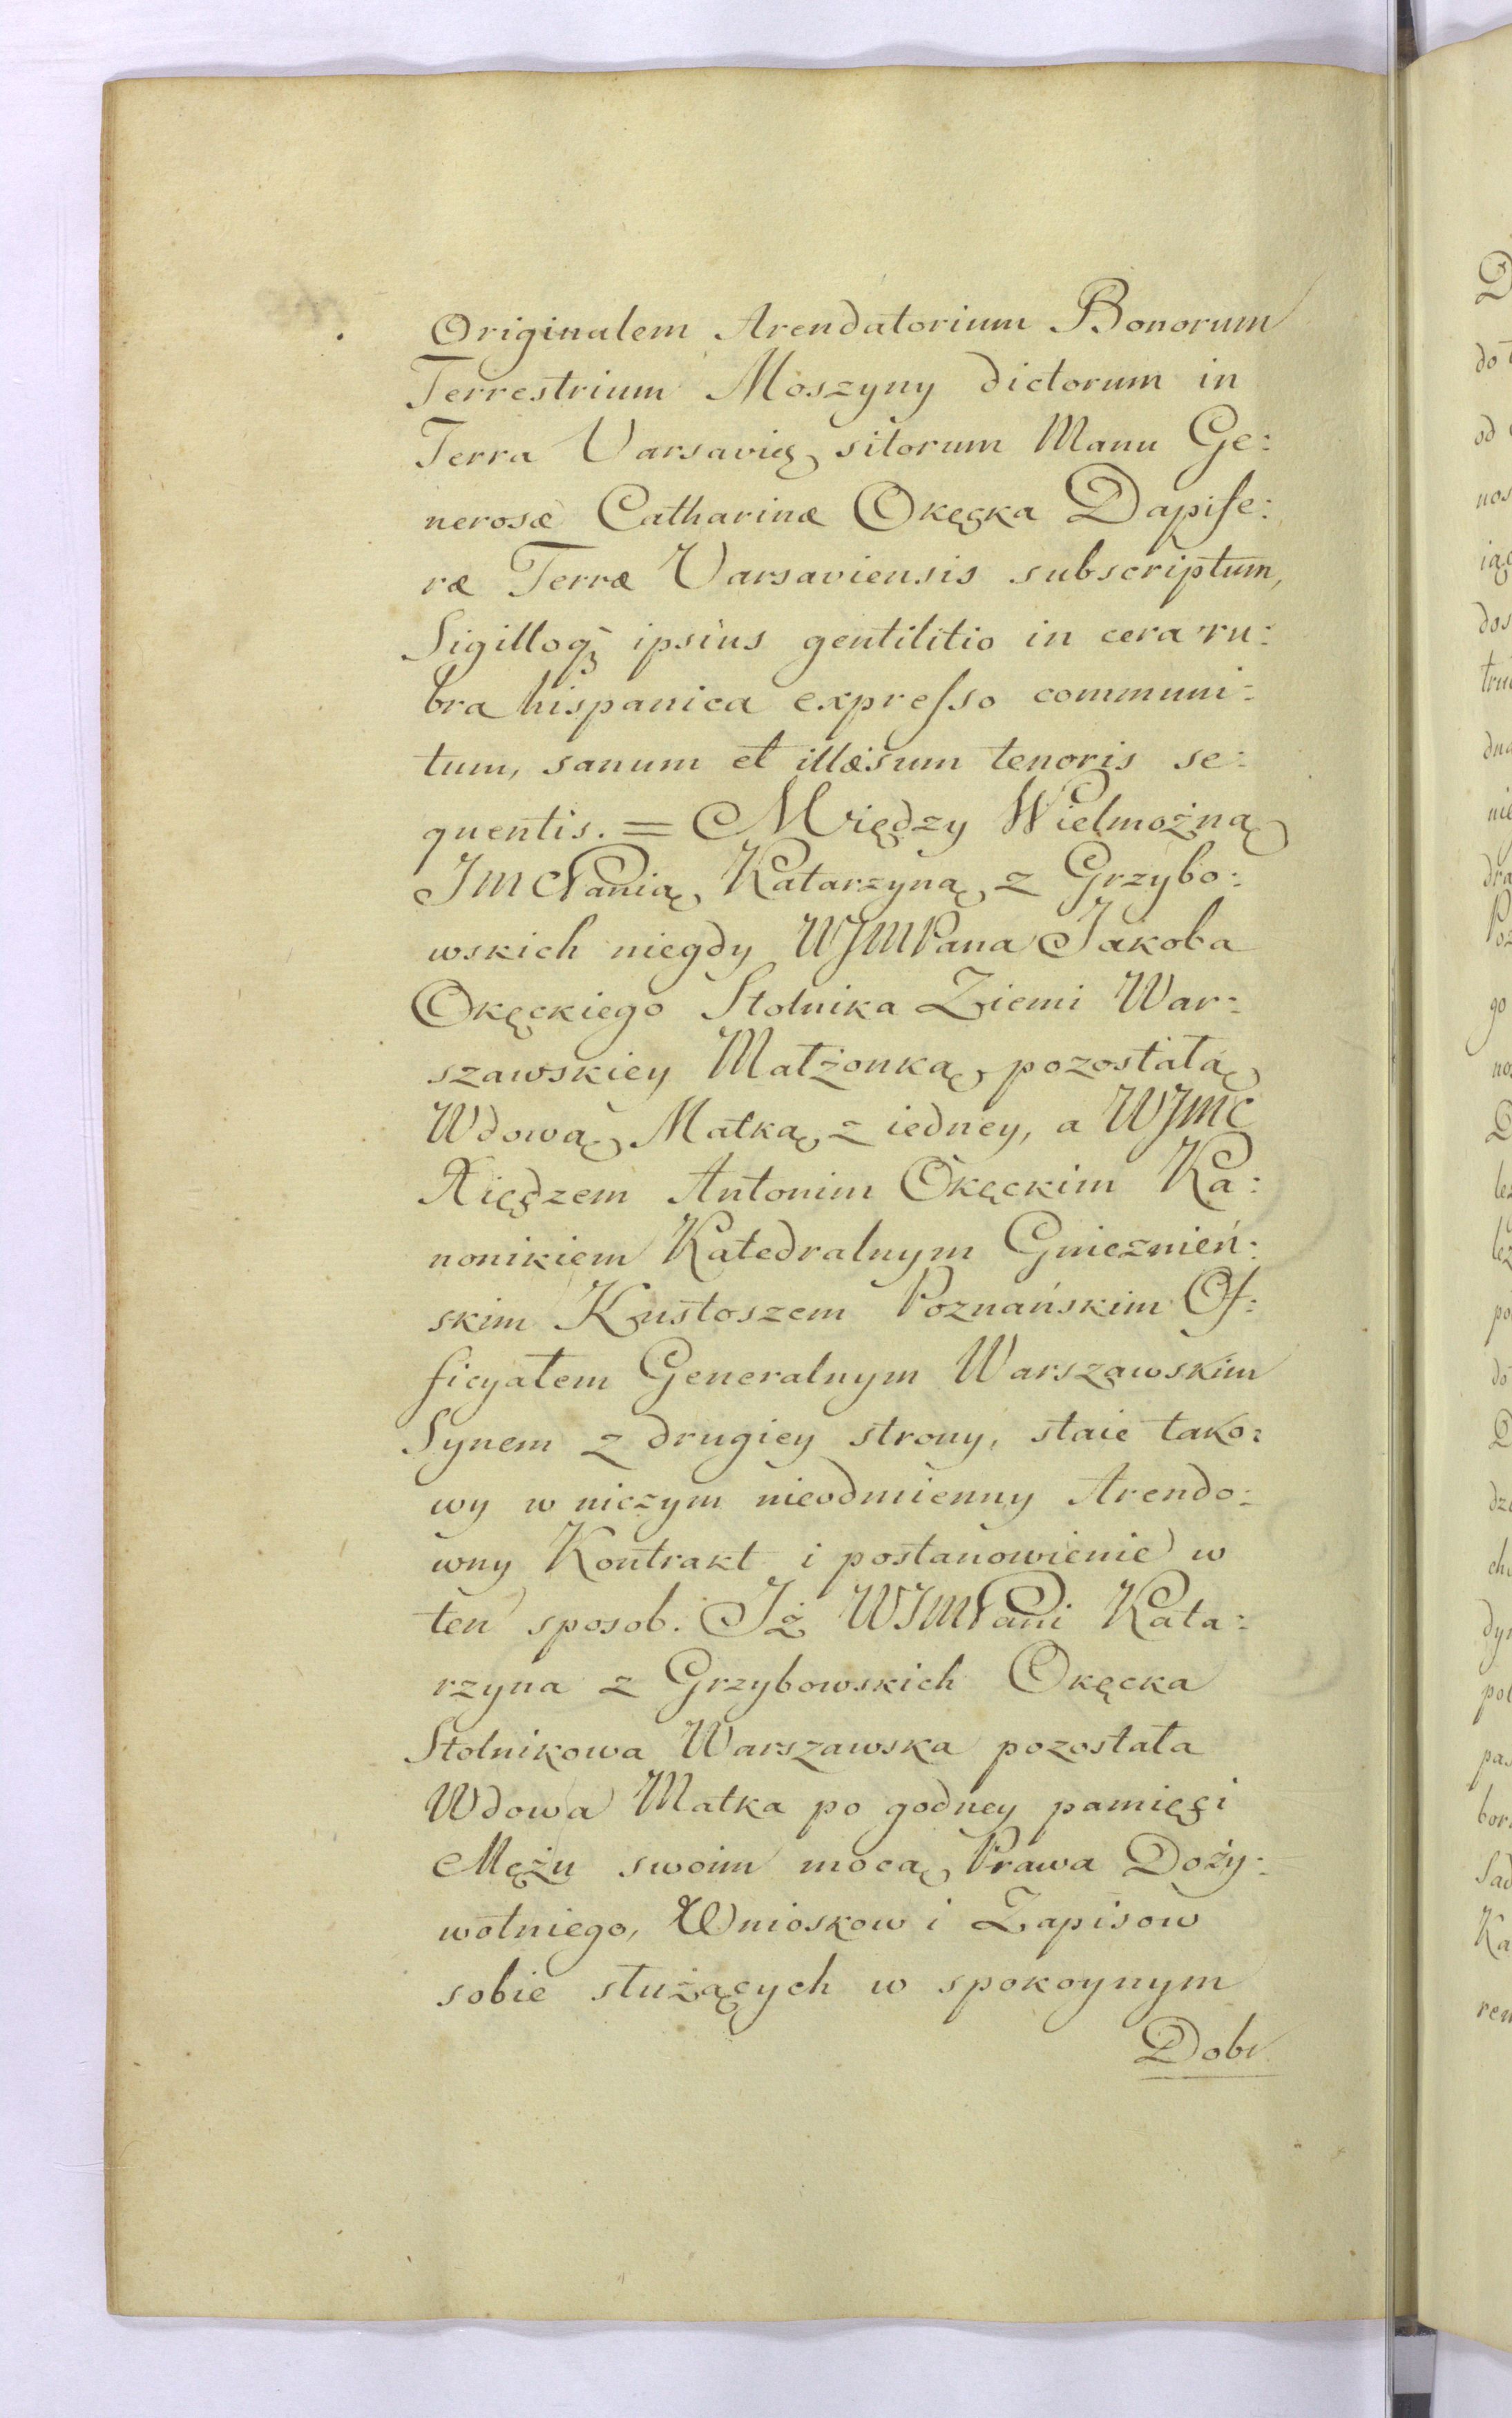 Originalem Arendatorium Bonorum
Terrestrium Moszyny dictorum in
Terra Varsavię sitorum Manu Ge:
nerosæ Catharinæ Okęcka Dapife:
ræ Terræ Varsaviensis subscriptum,
Sigilloq̃ ipsius gentilitio in cera ru:
bra hispanica expresso communi:
tum, sanum et illæsum tenoris se:
quentis. = Między Wielmożną
JMCPanią Katarzyną z Grzybo:
wskich niegdy WJMPana Jakoba
Okęckiego Stolnika Ziemi War:
szawskiey Małżonką pozostałą
Wdową Matką z iedney, a WJmc
Xiędzem Antonim Okęckim Ka:
nonikiem Katedralnym Gnieznień:
skim Kustoszem Poznańskim Of:
ficyałem Generalnym Warszawskim
Synem z drugiey strony, staie tako:
wy w niczym nieodmienny Arendo:
wny Kontrakt i postanowienie w
ten sposob. Iż WJMPani Kata:
rzyna z Grzybowskich Okęcka
Stolnikowa Warszawska pozostała
Wdowa Matka po godney pamięci
Mężu swoim mocą Prawa Doży:
wotniego, Wnioskow i Zapisow
sobie służących w spokoynym
Dobr